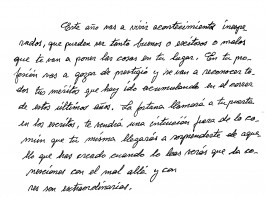 Este año vas a vivir acontecimientos inespe-
rados, que pueden ser tanto buenos o exitosos o malos
que te van a poner las cosas en tu lugar. En tu pro-
fesión vas a gozar de prestigio y se van a reconocer to-
dos tus méritos que hay ido acumulando en el correr
de estos últimos años. La fortuna llamará a tu puerta
en los escritos, te vendrá una intuición fuera de lo co-
mún que tu misma llegarás a sorprenderte de aque-
llo que has creado cuando lo leas verás que la co-
nexiones con el más allá y con
res son extraordinarias.